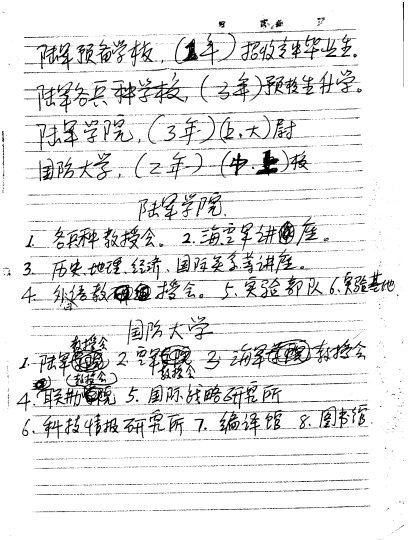 陆军预备学校，(1年)招收高中毕业生。
陆军各兵种学校，(3年)预校生升学。
陆军学院，(3年)(上、大)尉
国防大学，(2年)(中、上)校
陆军学院
1. 各兵种教授会。2. 海空军讲座。
3. 历史、地理、经济、国际关系等讲座。
4. 外语教授会。5. 实验部队 6. 实验基地
国防大学
教授会
1. 陆军 2. 空军 3. 海军教授会
(教授会) 教授会
4. 联勤院 5. 国际战略研究所
6. 科技情报研究所 7. 编译馆 8. 图书馆